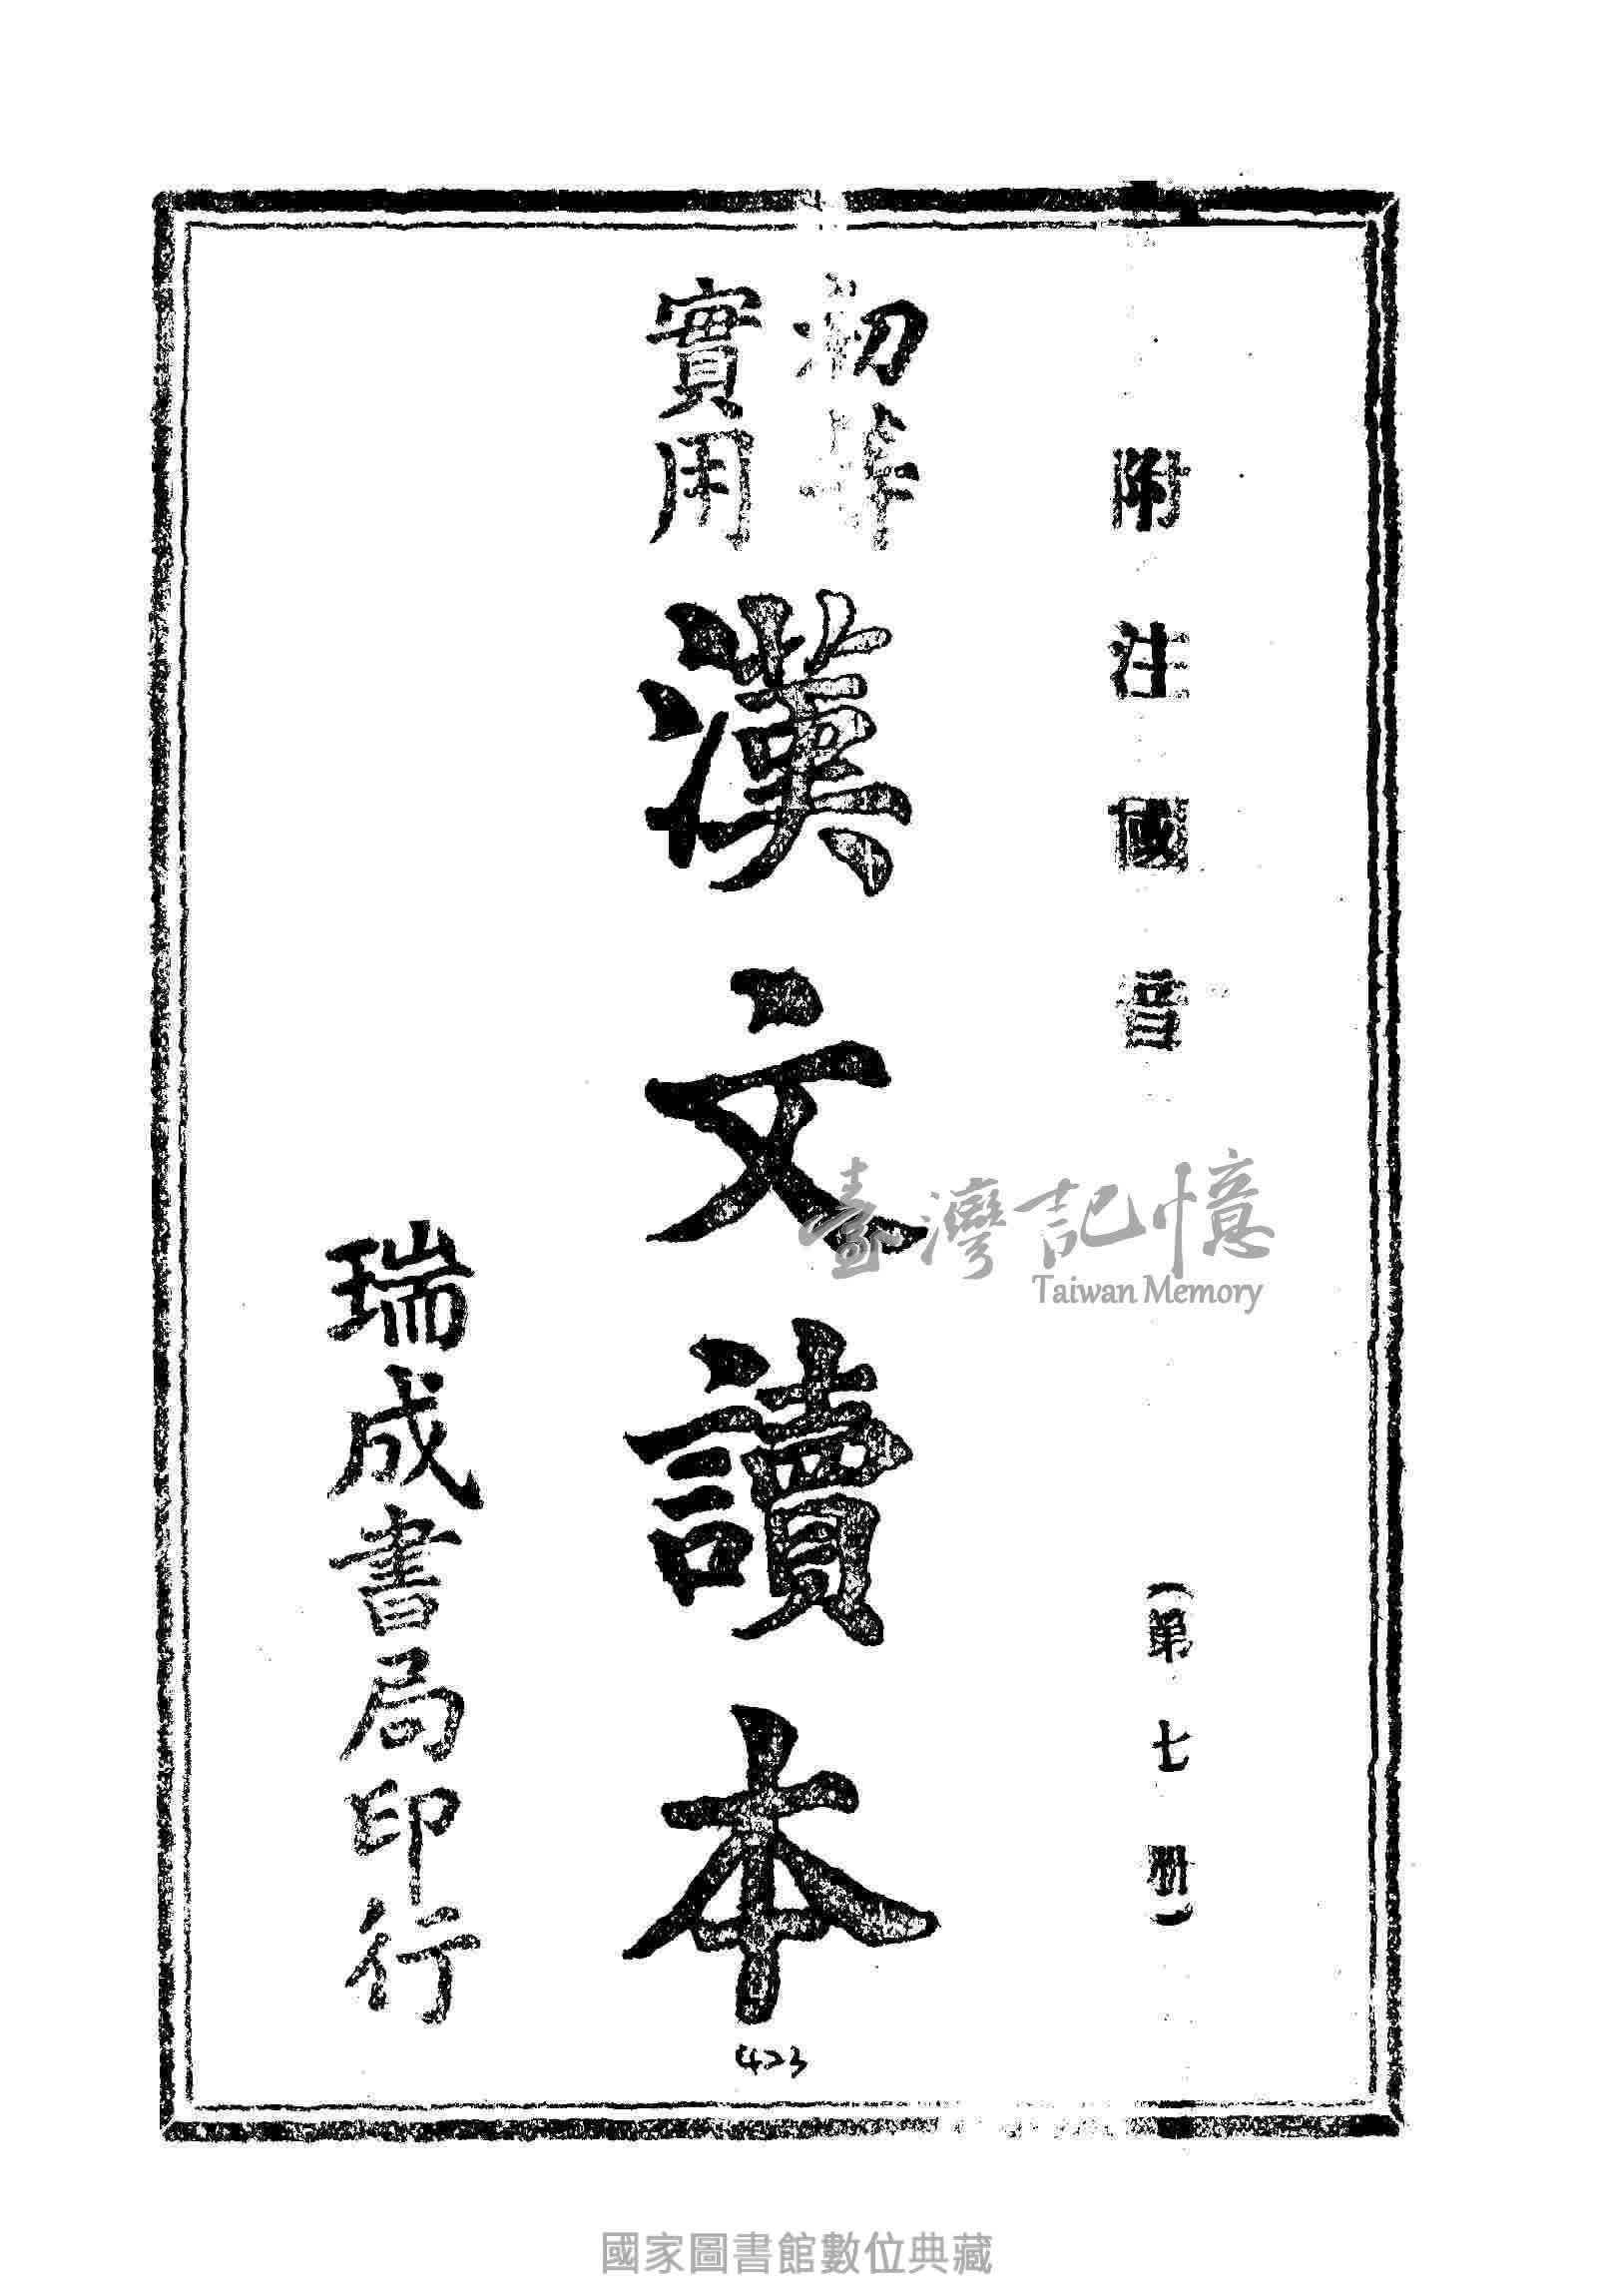 附注國音
(第七册)
初等
實用
漢文讀本
423
瑞成書局印行
臺灣記憶
Taiwan Memory
國家圖書館數位典藏